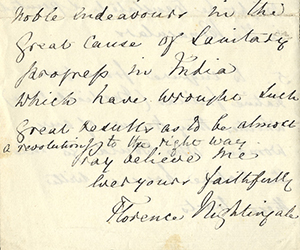 noble endeavours in the
great cause of Sanitary
progress in India
which have wrought such
great results as to be almost
a revolution to the right way
Pray believe me
ever yours faithfully
Florence Nightingale